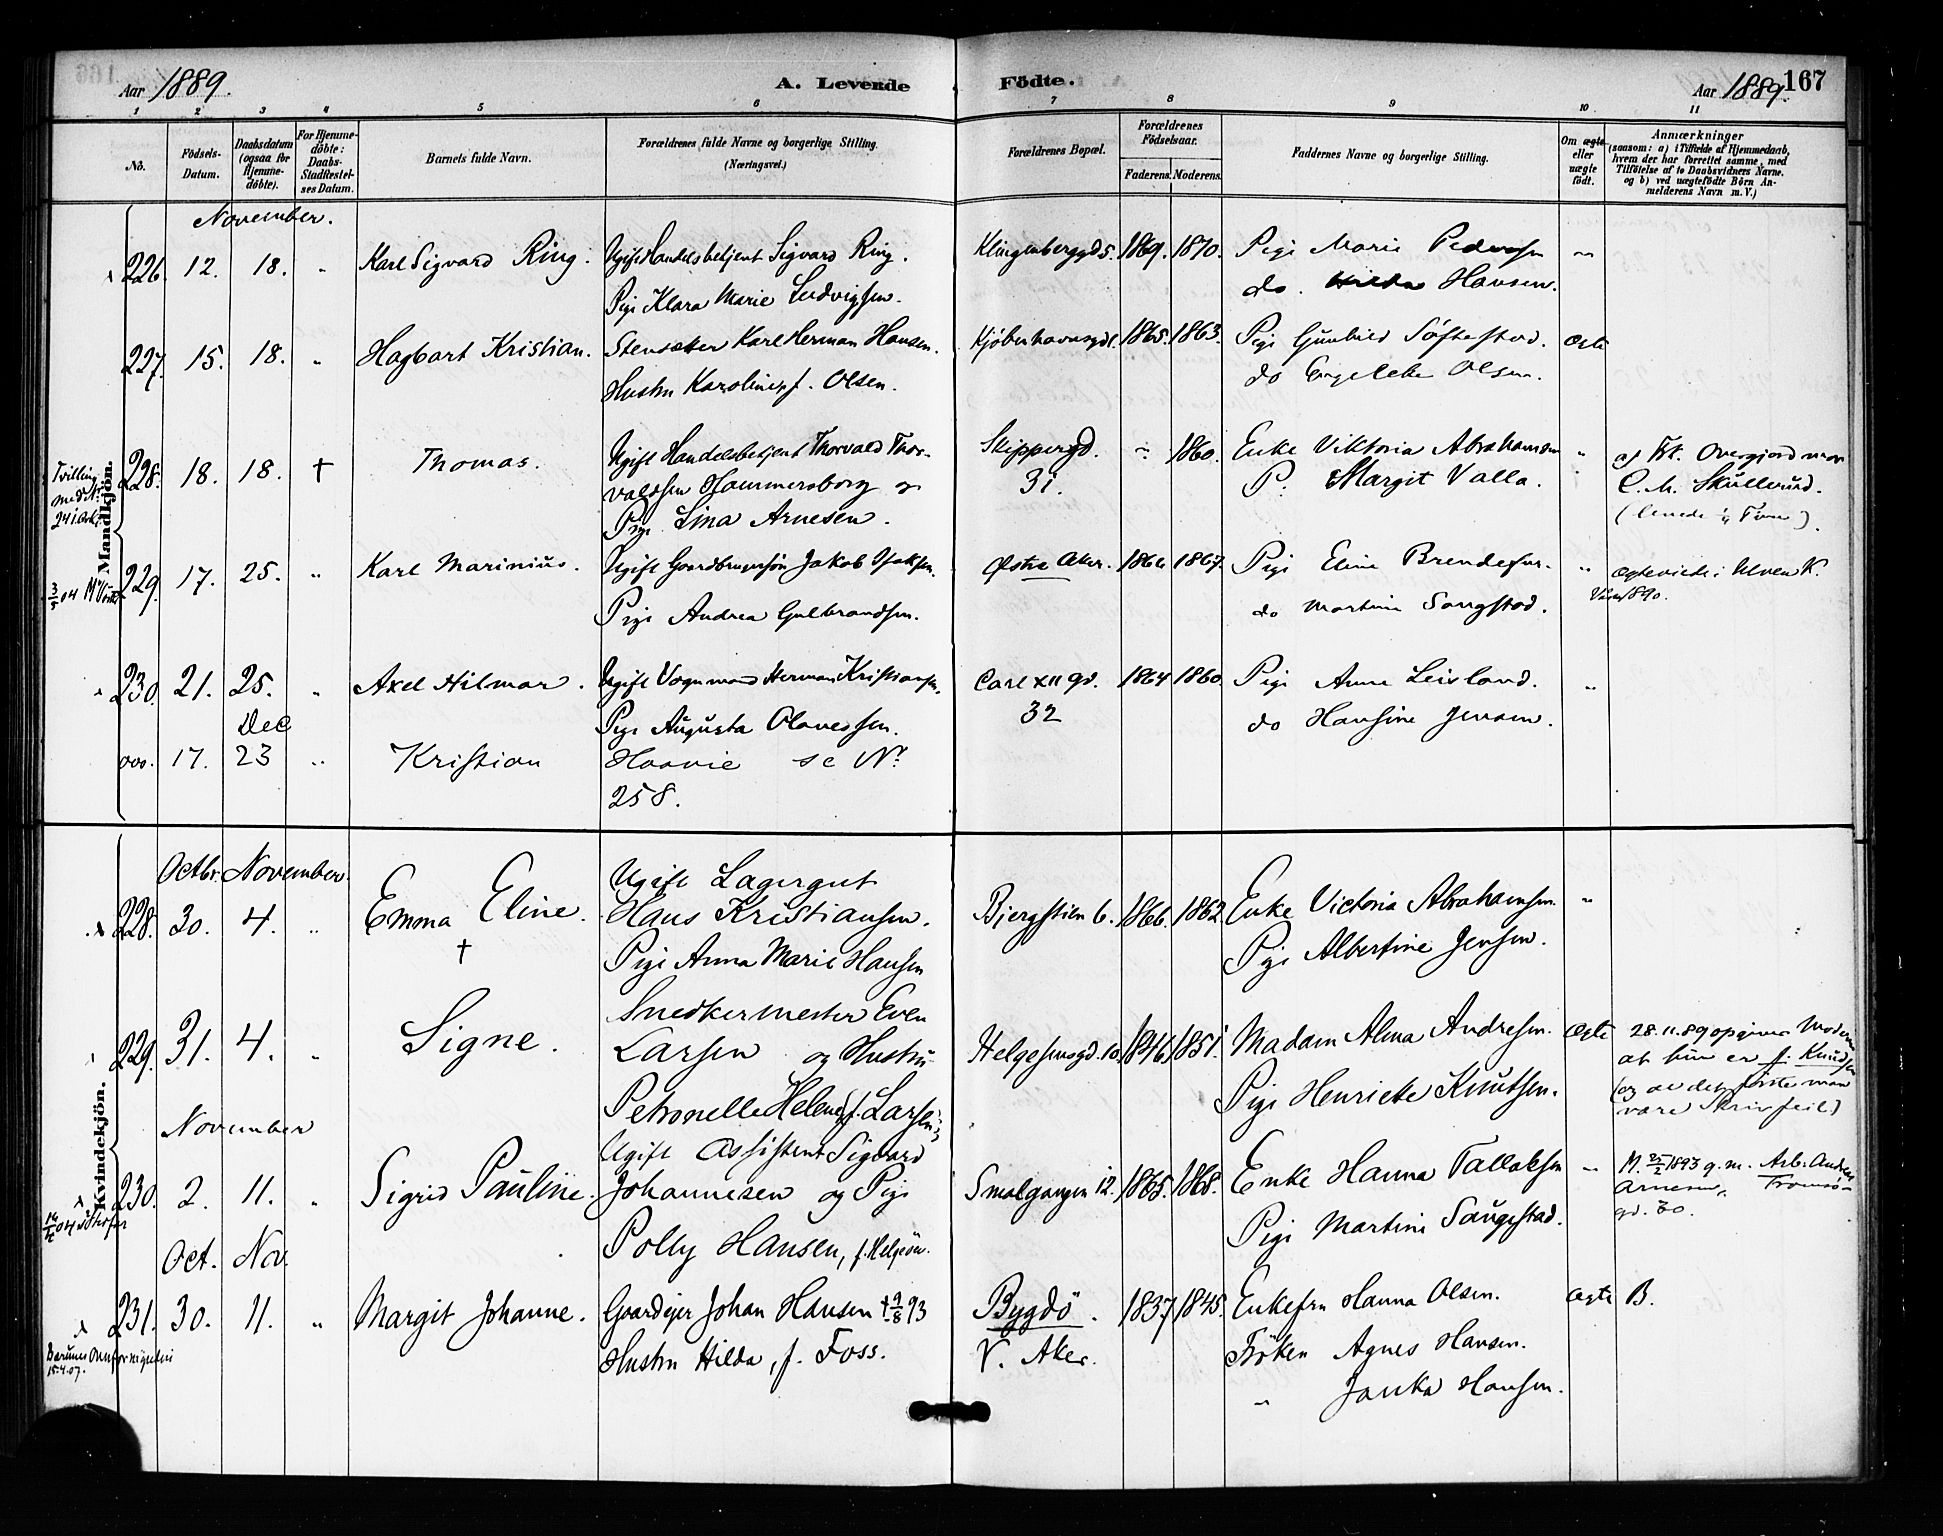 Aar 1889.
A. Levende Födte.
Aar 1889. 167
1 2 3 4 5 6 7 8 9 10 11
Nô. Födsels-Datum. Daabsdatum (ogsaa for Hjemmedöbte). For Hjemmedöbte: Daabs-Stadfæstelses Datum. Barnets fulde Navn. Forældrenes fulde Navne og borgerlige Stilling. (Næringsvei.) Forældrenes Bopæl. Forældrenes Födselsaar. Faderens. Moderens. Faddernes Navne og borgerlige Stilling. Om ægte eller uægte födt. Anmærkninger (saasom: a) i Tilfælde af Hjemmedaab, hvem der har forrettet samme, med Tilföielse af to Daabsvidners Navne, og b) ved uægtefödte Börn Anmelderens Navn m. V.)
Mandkjön.
November.
226. 12. 18. " Karl Sigvard Ring. Ugift Handelsbetjent Sigvard Ring. Klingenberggd 5. 1869. 1870. Pige Marie Pedersen "
Pige Klara Marie Ludvigsen. do. Hansen.
227. 15. 18. " Hagbart Kristian. Karl Herman Hansen. 1865. 1863. Pige Gunhild ægte
Hustru Karoline f. Olsen. do Olsen.
Tvilling med Nr.
228. 18. 18. † Thomas. Ugift Handelsbetjent Thorvald Thor- Skippergd. 1860. Enke Viktoria Abrahamsen "
valdsen Hammersborg 31. P. Margit Valla. C. M. Skullerud.
Pige Lina Arnesen.
229. 17. 25. " Karl Marinius. Ugift Jakob Østre Aker. 1866 1867. Pige Eline "
Pige Andrea Gulbrandsen. do Martine 1890.
230. 21. 25. " Axel Hilmar. Ugift Vognmand Herman Kristiansen. Carl XII gd. 1864 1860. Pige Anna "
Dec Pige Augusta Olavessen. 32 do Hansine Jensen.
000. 17. 23 " Kristian Haavie se Nr.
258.
Kvindekjön.
Octbr. November. Ugift Lagergut
228. 30. 4. " Emma Eline. Hans Kristiansen. Bjergstien 6. 1866. 1862. Enke Victoria Abrahamsen "
† Pige Anna Marie Hansen Pige Albertine Jensen.
Snedkermester Even
229. 31. 4. " Signe. Larsen og Hustru Helgesensgd. 10. 1846. 1851. Madam Alma Andresen. ægte 28.11.89 opgiver Moderen
Petronelle Helene f. Larsen Pige Henriette Knutsen. at hun er f. Knudsen
(og at det første maa
være Skrivfeil)
November
Ugift Assistent Sigvard
230. 2. 11. " Sigrid Pauline. Johannesen og Pige Smalgangen 12. 1865. 1868. Enke Hanna Tallaksen " 1893 g. m. Arb. Andreas
Polly Hansen, f. Pige Martine Tromsø-
gd. 30.
Oct. Nov.
231. 30. 11. " Margit Johanne. Gaardejer Johan Hansen † 9/8 93 Bygdö. 1837. 1845. Enkefru Hanna Olsen. ægte B.
Hustru Hilda, f. Foss. V. Aker. Fröken Agnes Hansen.
" Janka Hansen.
15.4.07.